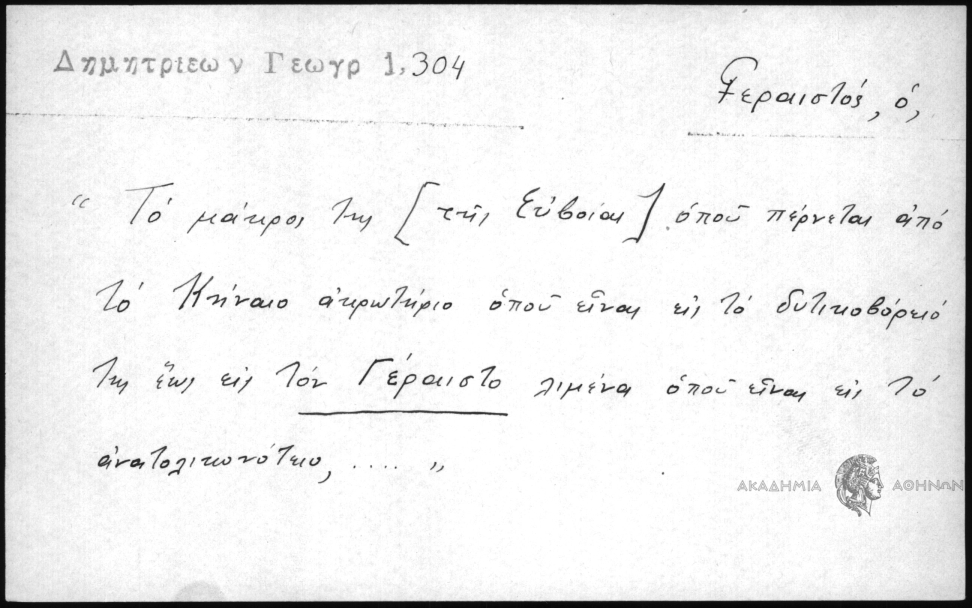 Δημητριεων Γεωγρ 1, 304
Γεραιστός, ὁ,
“ Τό μάκρος της [τῆς Εὐβοίας] ὁποῦ πέρνεται ἀπό
τό Κήναιο ἀκρωτήριο ὁποῦ εἶναι εἰς τό δυτικοβόρειό
της ἕως εἰς τόν Γέραιστο λιμένα ὁποῦ εἶναι εἰς τό
ἀνατολικονότειο, .... „
ΑΚΑΔΗΜΙΑ ΑΘΗΝΩΝ